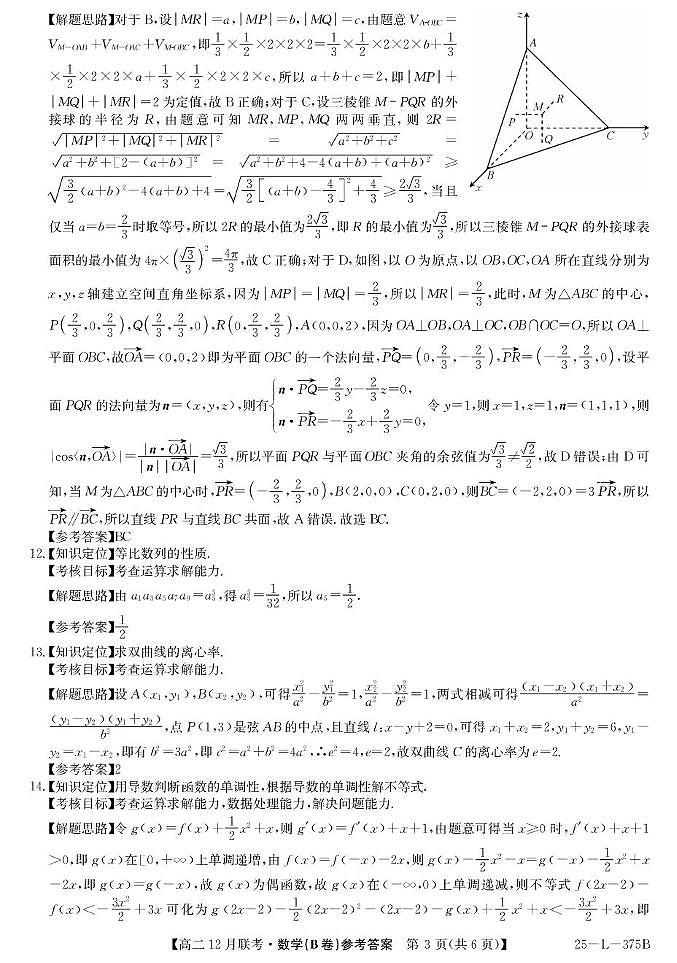 【解题思路】对于 B,设|MR|=a,|MP|=b,|MQ|=c,由题意 V_{A-OBC}=
V_{M-OAB}+V_{M-OAC}+V_{M-OBC},即1/3×1/2×2×2×2=1/3×1/2×2×2×b+1/3
×1/2×2×2×a+1/3×1/2×2×2×c,所以 a+b+c=2,即|MP|+
|MQ|+|MR|=2为定值,故B正确;对于C,设三棱锥M-PQR的外
接球的半径为R,由题意可知MR,MP,MQ两两垂直,则2R=
√(|MP|²+|MQ|²+|MR|²) = √(a²+b²+c²) =
√(a²+b²+[2-(a+b)]²) = √(a²+b²+4-4(a+b)+(a+b)²) ≥
√(3/2(a+b)²-4(a+b)+4)=√(3/2[(a+b)-4/3]²+4/3)≥2√3/3,当且
仅当a=b=2/3时取等号,所以2R的最小值为2√3/3,即R的最小值为√3/3,所以三棱锥M-PQR的外接球表
面积的最小值为4π×(√3/3)²=4π/3,故C正确;对于D,如图,以O为原点,以OB,OC,OA所在直线分别为
x,y,z轴建立空间直角坐标系,因为|MP|=|MQ|=2/3,所以|MR|=2/3,此时,M为△ABC的中心,
P(2/3,0,2/3),Q(2/3,2/3,0),R(0,2/3,2/3),A(0,0,2),因为OA⊥OB,OA⊥OC,OB∩OC=O,所以OA⊥
平面OBC,故→OA=(0,0,2)即为平面OBC的一个法向量,→PQ=(0,2/3,-2/3),→PR=(-2/3,2/3,0),设平
面PQR的法向量为n=(x,y,z),则有{n·→PQ=2/3y-2/3z=0, n·→PR=-2/3x+2/3y=0, 令y=1,则x=1,z=1,n=(1,1,1),则
|cos⟨n,→OA⟩|=|n·→OA|/|n||→OA|=√3/3,所以平面PQR与平面OBC夹角的余弦值为√3/3≠√2/2,故D错误;由D可
知,当M为△ABC的中心时,→PR=(-2/3,2/3,0),B(2,0,0),C(0,2,0),则→BC=(-2,2,0)=3→PR,所以
→PR∥→BC,所以直线PR与直线BC共面,故A错误.故选BC.
【参考答案】BC
12.【知识定位】等比数列的性质.
【考核目标】考查运算求解能力.
【解题思路】由a₁a₃a₅a₇a₉=a₅⁵,得a₅⁵=1/32,所以a₅=1/2.
【参考答案】1/2
13.【知识定位】求双曲线的离心率.
【考核目标】考查运算求解能力.
【解题思路】设A(x₁,y₁),B(x₂,y₂),可得x₁²/a²-y₁²/b²=1,x₂²/a²-y₂²/b²=1,两式相减可得(x₁-x₂)(x₁+x₂)/a²=
(y₁-y₂)(y₁+y₂)/b²,点P(1,3)是弦AB的中点,且直线l:x-y+2=0,可得x₁+x₂=2,y₁+y₂=6,y₁-
y₂=x₁-x₂,即有b²=3a²,即c²=a²+b²=4a²,∴e²=4,e=2,故双曲线C的离心率为e=2.
【参考答案】2
14.【知识定位】用导数判断函数的单调性,根据导数的单调性解不等式.
【考核目标】考查运算求解能力,数据处理能力,解决问题能力.
【解题思路】令g(x)=f(x)+1/2x²+x,则g′(x)=f′(x)+x+1,由题意可得当x≥0时,f′(x)+x+1
>0,即g(x)在[0,+∞)上单调递增,由f(x)=f(-x)-2x,则g(x)-1/2x²-x=g(-x)-1/2x²+x
-2x,即g(x)=g(-x),故g(x)为偶函数,故g(x)在(-∞,0)上单调递减,则不等式f(2x-2)-
f(x)<-3x²/2+3x可化为g(2x-2)-1/2(2x-2)²-(2x-2)-g(x)+1/2x²+x<-3x²/2+3x,即
【高二12月联考·数学(B卷)参考答案 第3页(共6页)】 25-L-375B
z
A
R
M
P
O
Q
C
y
B
x